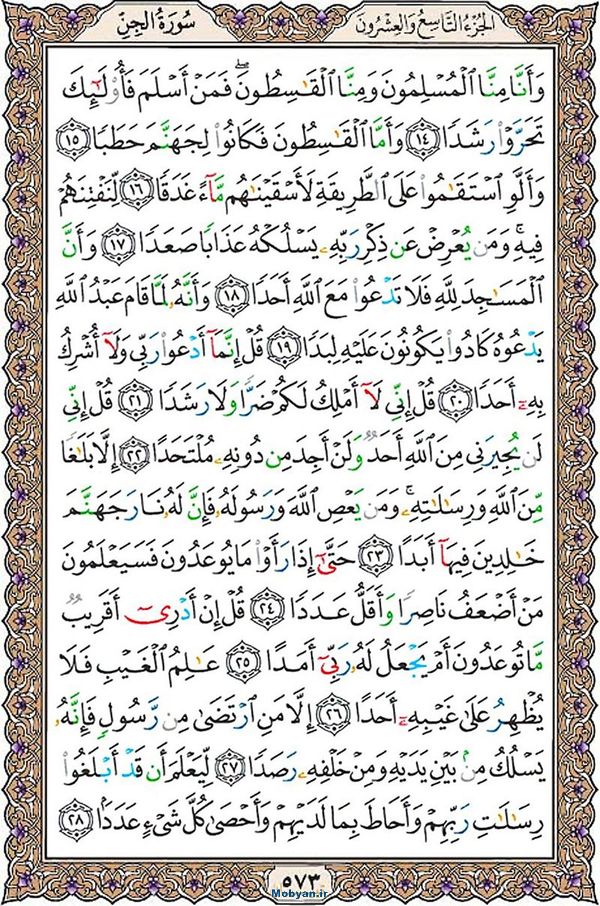 الجزء التاسع والعشرون
سورة الجن
وَأَنَّا مِنَّا ٱلْمُسْلِمُونَ وَمِنَّا ٱلْقَـٰسِطُونَ ۖ فَمَنْ أَسْلَمَ فَأُو۟لَـٰٓئِكَ
تَحَرَّوْا۟ رَشَدًا ﴿١٤﴾ وَأَمَّا ٱلْقَـٰسِطُونَ فَكَانُوا۟ لِجَهَنَّمَ حَطَبًا ﴿١٥﴾
وَأَلَّوِ ٱسْتَقَـٰمُوا۟ عَلَى ٱلطَّرِيقَةِ لَأَسْقَيْنَـٰهُم مَّآءً غَدَقًا ﴿١٦﴾ لِّنَفْتِنَهُمْ
فِيهِ ۚ وَمَن يُعْرِضْ عَن ذِكْرِ رَبِّهِۦ يَسْلُكْهُ عَذَابًا صَعَدًا ﴿١٧﴾ وَأَنَّ
ٱلْمَسَـٰجِدَ لِلَّهِ فَلَا تَدْعُوا۟ مَعَ ٱللَّهِ أَحَدًا ﴿١٨﴾ وَأَنَّهُۥ لَمَّا قَامَ عَبْدُ ٱللَّهِ
يَدْعُوهُ كَادُوا۟ يَكُونُونَ عَلَيْهِ لِبَدًا ﴿١٩﴾ قُلْ إِنَّمَآ أَدْعُوا۟ رَبِّى وَلَآ أُشْرِكُ
بِهِۦٓ أَحَدًا ﴿٢٠﴾ قُلْ إِنِّى لَآ أَمْلِكُ لَكُمْ ضَرًّا وَلَا رَشَدًا ﴿٢١﴾ قُلْ إِنِّى
لَن يُجِيرَنِى مِنَ ٱللَّهِ أَحَدٌ وَلَنْ أَجِدَ مِن دُونِهِۦ مُلْتَحَدًا ﴿٢٢﴾ إِلَّا بَلَـٰغًا
مِّنَ ٱللَّهِ وَرِسَـٰلَـٰتِهِۦ ۚ وَمَن يَعْصِ ٱللَّهَ وَرَسُولَهُۥ فَإِنَّ لَهُۥ نَارَ جَهَنَّمَ
خَـٰلِدِينَ فِيهَآ أَبَدًا ﴿٢٣﴾ حَتَّىٰٓ إِذَا رَأَوْا۟ مَا يُوعَدُونَ فَسَيَعْلَمُونَ
مَنْ أَضْعَفُ نَاصِرًا وَأَقَلُّ عَدَدًا ﴿٢٤﴾ قُلْ إِنْ أَدْرِىٓ أَقَرِيبٌ
مَّا تُوعَدُونَ أَمْ يَجْعَلُ لَهُۥ رَبِّىٓ أَمَدًا ﴿٢٥﴾ عَـٰلِمُ ٱلْغَيْبِ فَلَا
يُظْهِرُ عَلَىٰ غَيْبِهِۦٓ أَحَدًا ﴿٢٦﴾ إِلَّا مَنِ ٱرْتَضَىٰ مِن رَّسُولٍ فَإِنَّهُۥ
يَسْلُكُ مِنۢ بَيْنِ يَدَيْهِ وَمِنْ خَلْفِهِۦ رَصَدًا ﴿٢٧﴾ لِّيَعْلَمَ أَن قَدْ أَبْلَغُوا۟
رِسَـٰلَـٰتِ رَبِّهِمْ وَأَحَاطَ بِمَا لَدَيْهِمْ وَأَحْصَىٰ كُلَّ شَىْءٍ عَدَدًۢا ﴿٢٨﴾
٥٧٣
Mobyan.ir